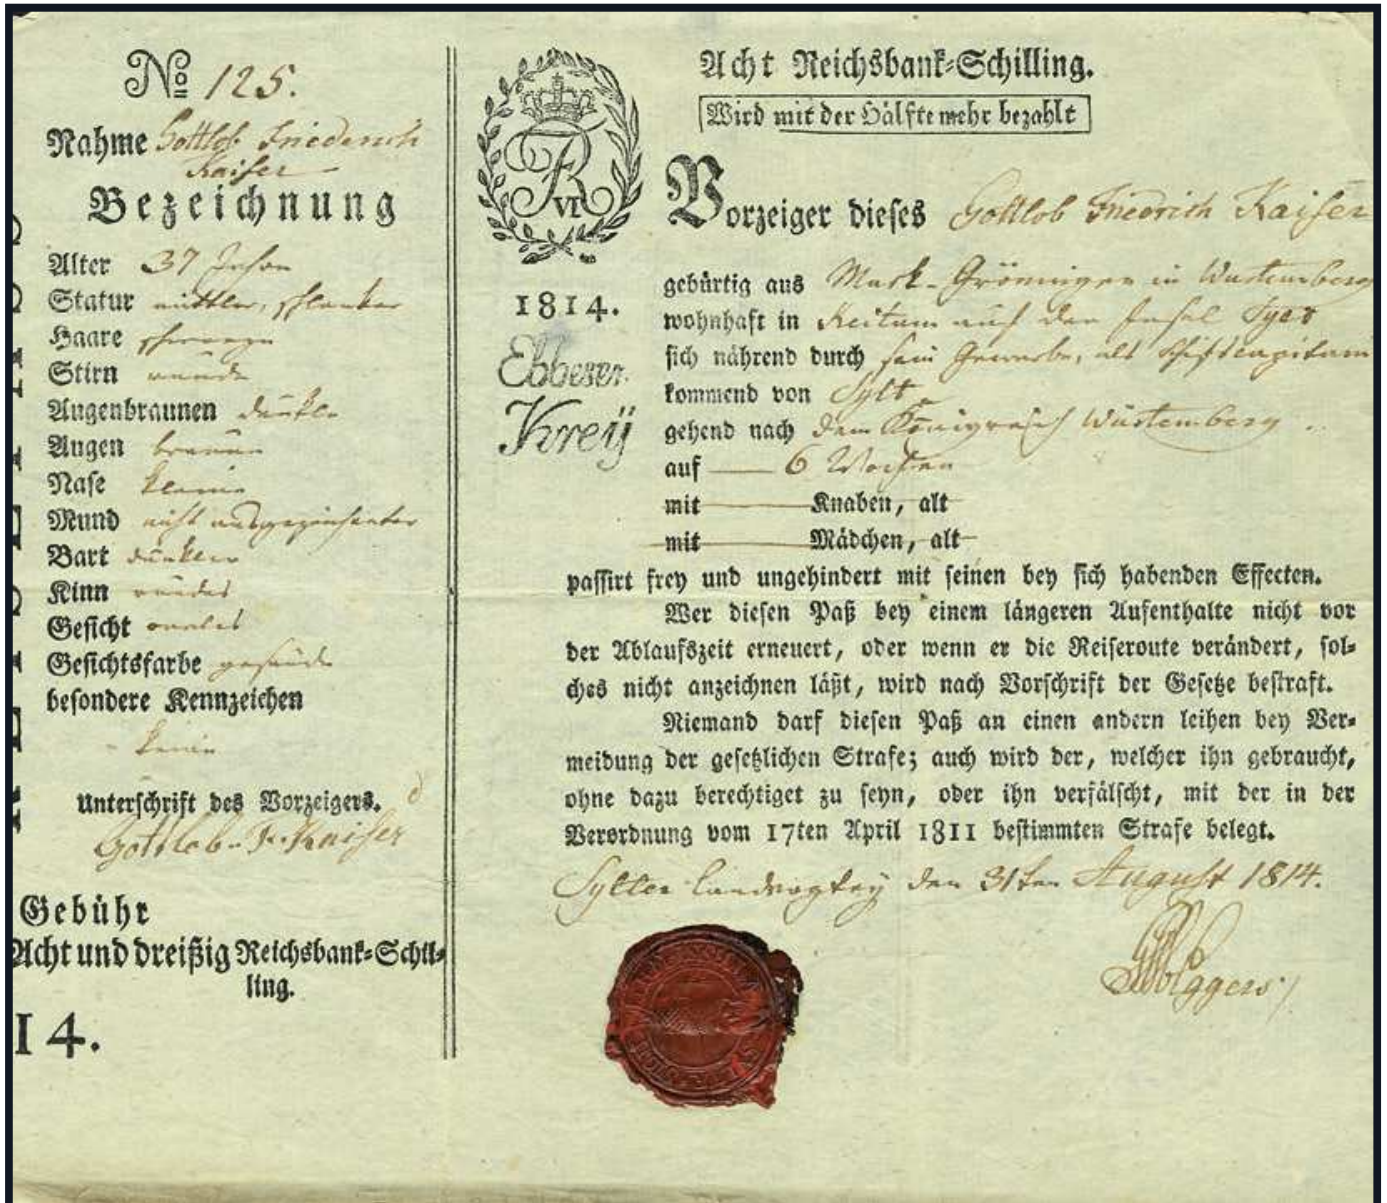 No 125.
Nahme Gottlob Friederich
Kaiser
Bezeichnung
Alter 37 Jahre
Statur mittler, schlanker
Haare schwarze
Stirn runde
Augenbraunen dunkle
Augen braune
Nase kleine
Mund nicht ausgezeichneter
Bart dunkler
Kinn rundes
Gesicht ovales
Gesichtsfarbe gesunde
besondere Kennzeichen
keine
Unterschrift des Vorzeigers.
Gottlob F. Kaiser
Gebühr
Acht und dreißig Reichsbank-Schil-
ling.
14.
FR VI
1814.
Ebbesen
Kreÿ
Acht Reichsbank-Schilling.
Wird mit der Hälfte mehr bezahlt
Vorzeiger dieses Gottlob Friedrich Kaiser
gebürtig aus Mark-Gröningen in Würtemberg
wohnhaft in Keitum auf der Insel Sylt
sich nährend durch sein Gewerbe, als Schiffcapitain
kommend von Sylt
gehend nach dem Königreich Würtemberg
auf 6 Wochen
mit Knaben, alt
mit Mädchen, alt
passirt frey und ungehindert mit seinen bey sich habenden Effecten.
Wer diesen Paß bey einem längeren Aufenthalte nicht vor
der Ablaufszeit erneuert, oder wenn er die Reiseroute verändert, sol-
ches nicht anzeichnen läßt, wird nach Vorschrift der Gesetze bestraft.
Niemand darf diesen Paß an einen andern leihen bey Ver-
meidung der gesetzlichen Strafe; auch wird der, welcher ihn gebraucht,
ohne dazu berechtiget zu seyn, oder ihn verfälscht, mit der in der
Verordnung vom 17ten April 1811 bestimmten Strafe belegt.
Sylter Landvogtey den 31ten August 1814.
Eggers